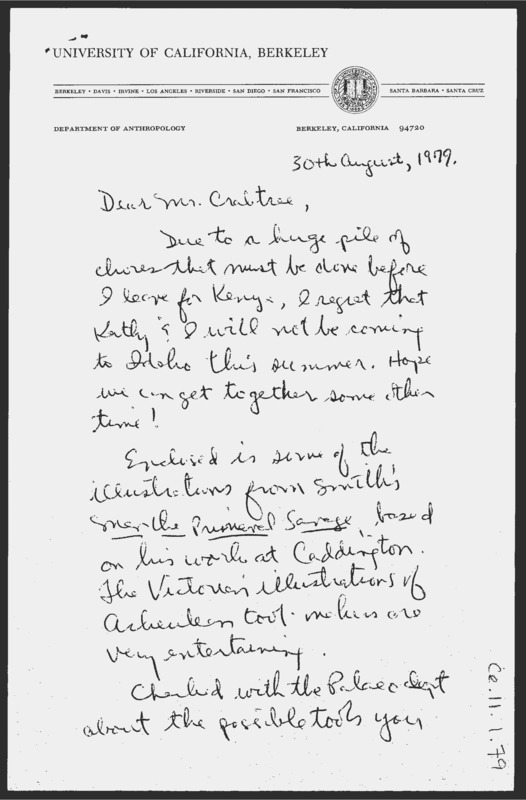 UNIVERSITY OF CALIFORNIA, BERKELEY
BERKELEY • DAVIS • IRVINE • LOS ANGELES • RIVERSIDE • SAN DIEGO • SAN FRANCISCO SANTA BARBARA • SANTA CRUZ
DEPARTMENT OF ANTHROPOLOGY BERKELEY, CALIFORNIA 94720
30th August, 1979.
Dear Mr. Crabtree,
Due to a huge pile of
chores that must be done before
I leave for Kenya, I regret that
Kathy & I will not be coming
to Idaho this summer. Hope
we can get together some other
time!
Enclosed is some of the
illustrations from Smith's
Man the Primeval Savage, based
on his work at Caddington.
The Victorian illustrations of
Acheulean tool-makers are
very entertaining.
Checked with the Palaeo dept
about the possible tools you
Ce.11.1.79